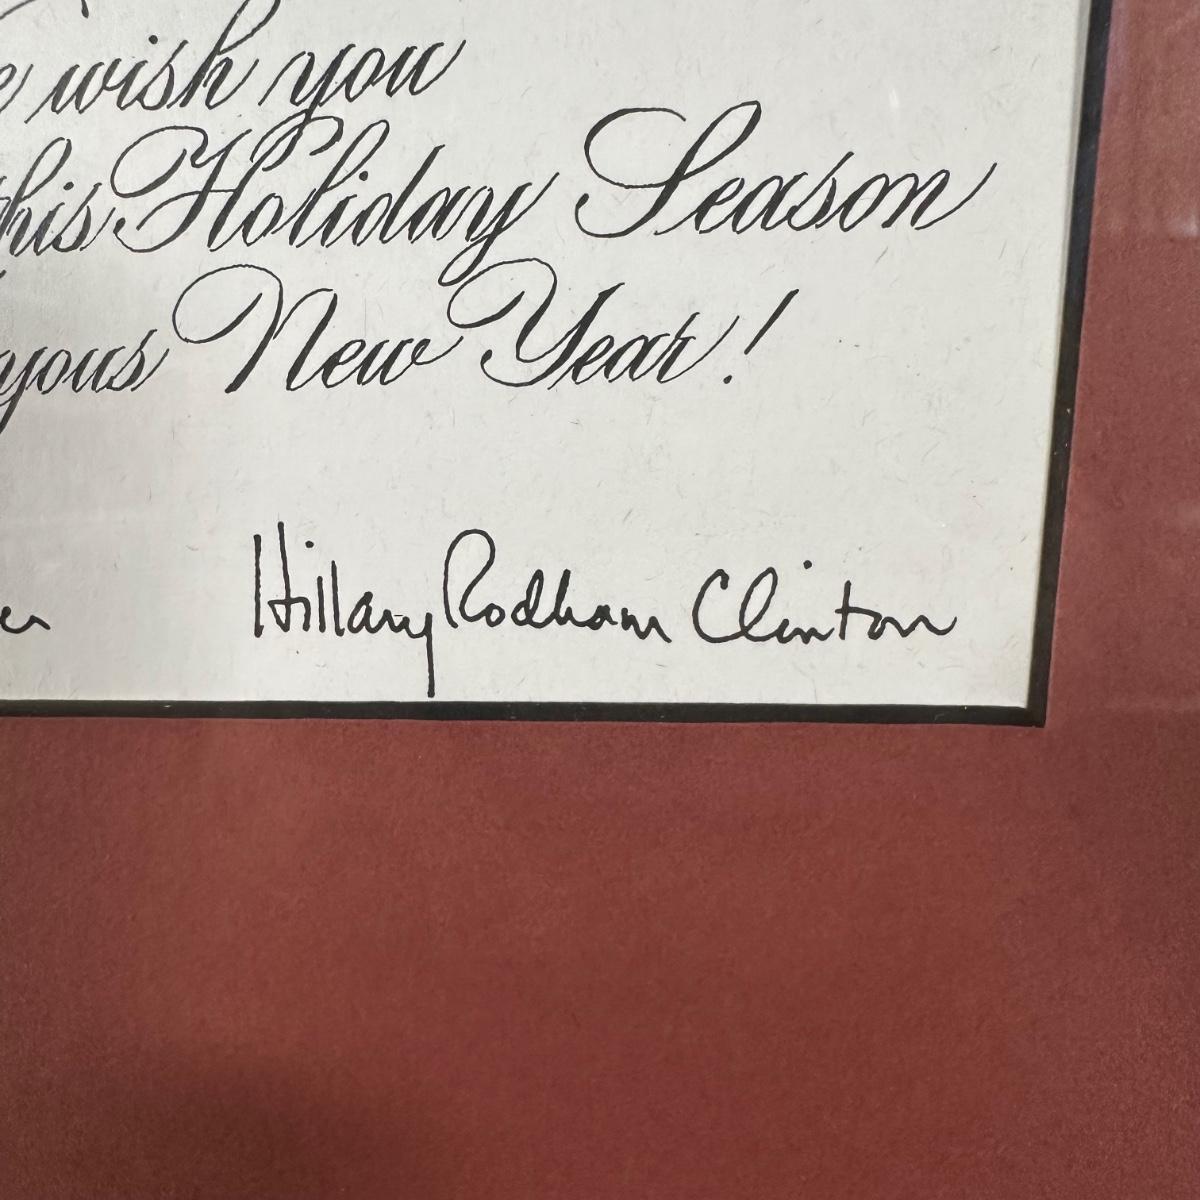 wish you
this Holiday Season
New Year!
Hillary Rodham Clinton